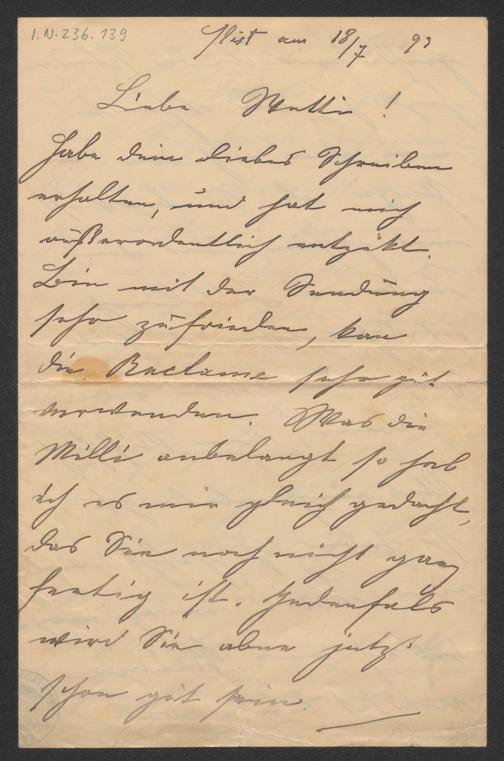 I.N.236.139
am 18/7 93
Liebe Netti!
Habe dein liebes Schreiben
erhalten, und hat mich
außerordentlich entzükt.
Bin mit der Sendung
sehr zufrieden, kan
die Reclame sehr gut
verwenden. Was die
Milli anbelangt so hab
ich es mir gleich gedacht,
das Sie noch nicht ganz
fertig ist. Jedenfals
wird Sie aber jetzt
schon gut sein.